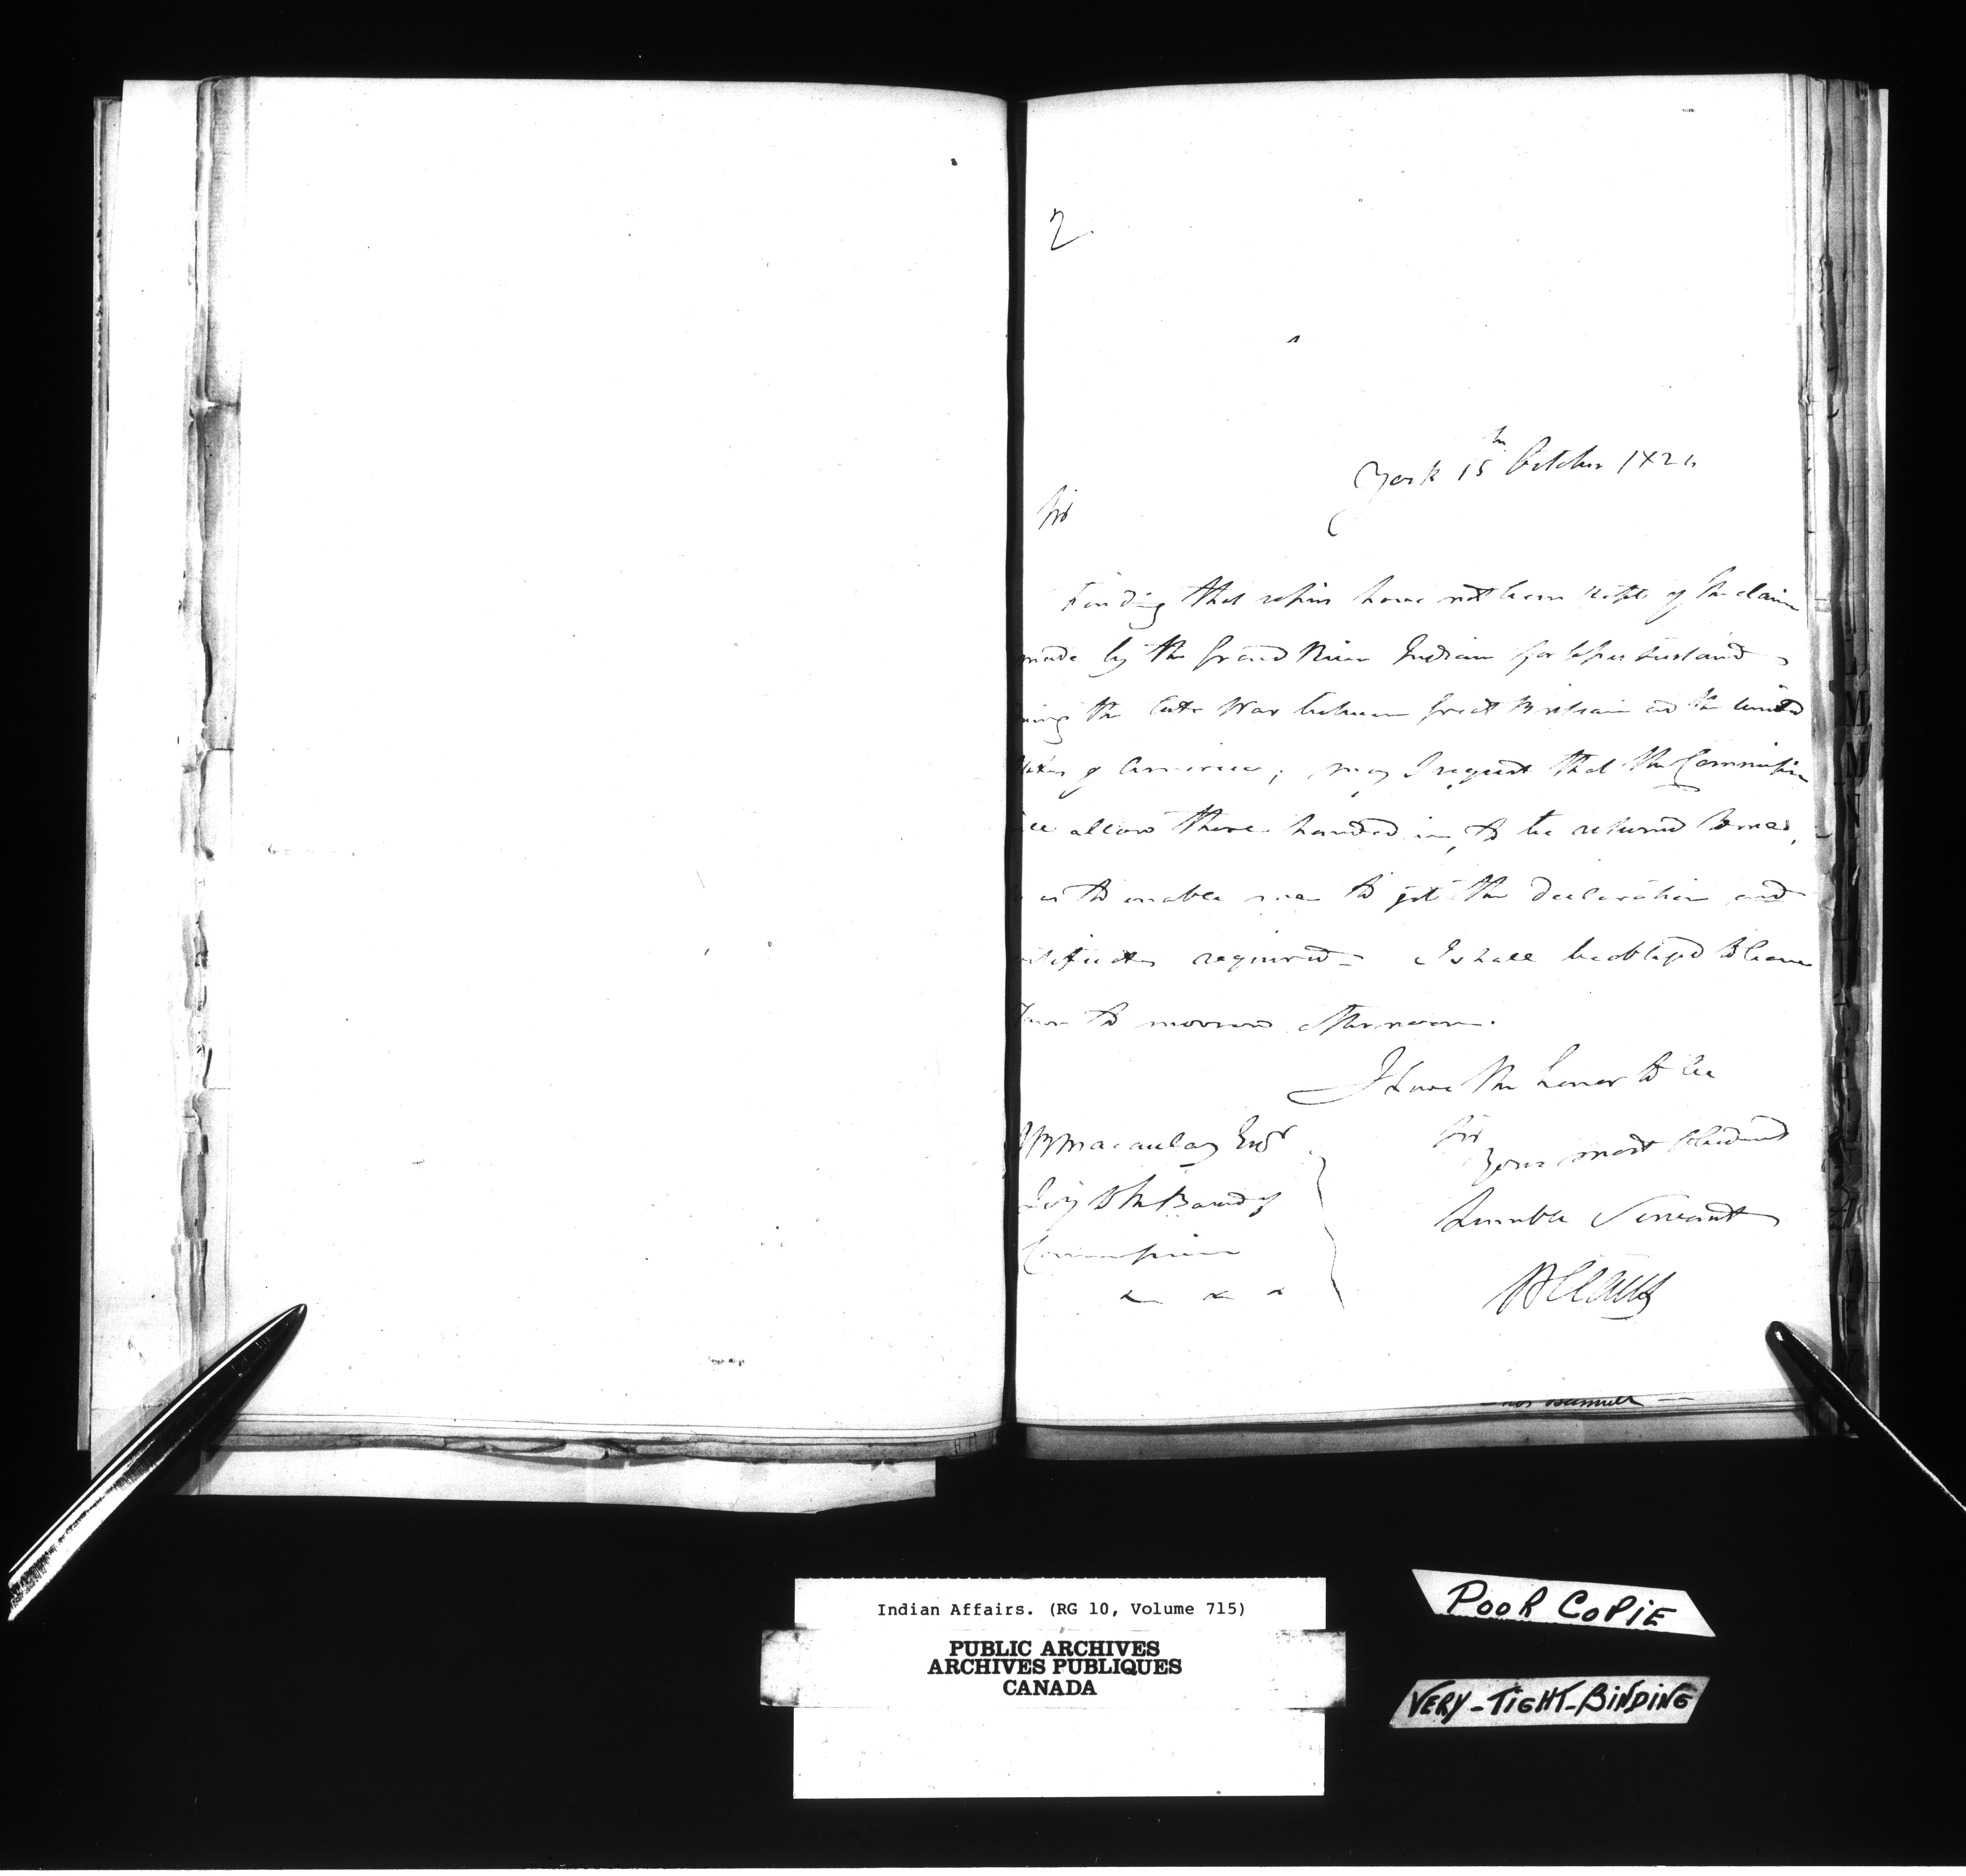 2
York 15th October 1824
Sir
Finding that copies have not been kept of the claims
made by the Grand River Indians for losses sustained
ing the late War between Great Britain and the United
States of America; may I request that the Commission
will allow those handed in, to be returned to me,
as to enable me to get the declaration and
certificates required – I shall be obliged to leave
this to morrow afternoon.
I have the honor to be
Sir
Your most obedient
humble Servant
WClaus
Macaulay Esqr
Secy to the Board of
Commission
Indian Affairs. (RG 10, Volume 715)
PUBLIC ARCHIVES
ARCHIVES PUBLIQUES
CANADA
POOR COPIE
VERY-TIGHT-BINDING